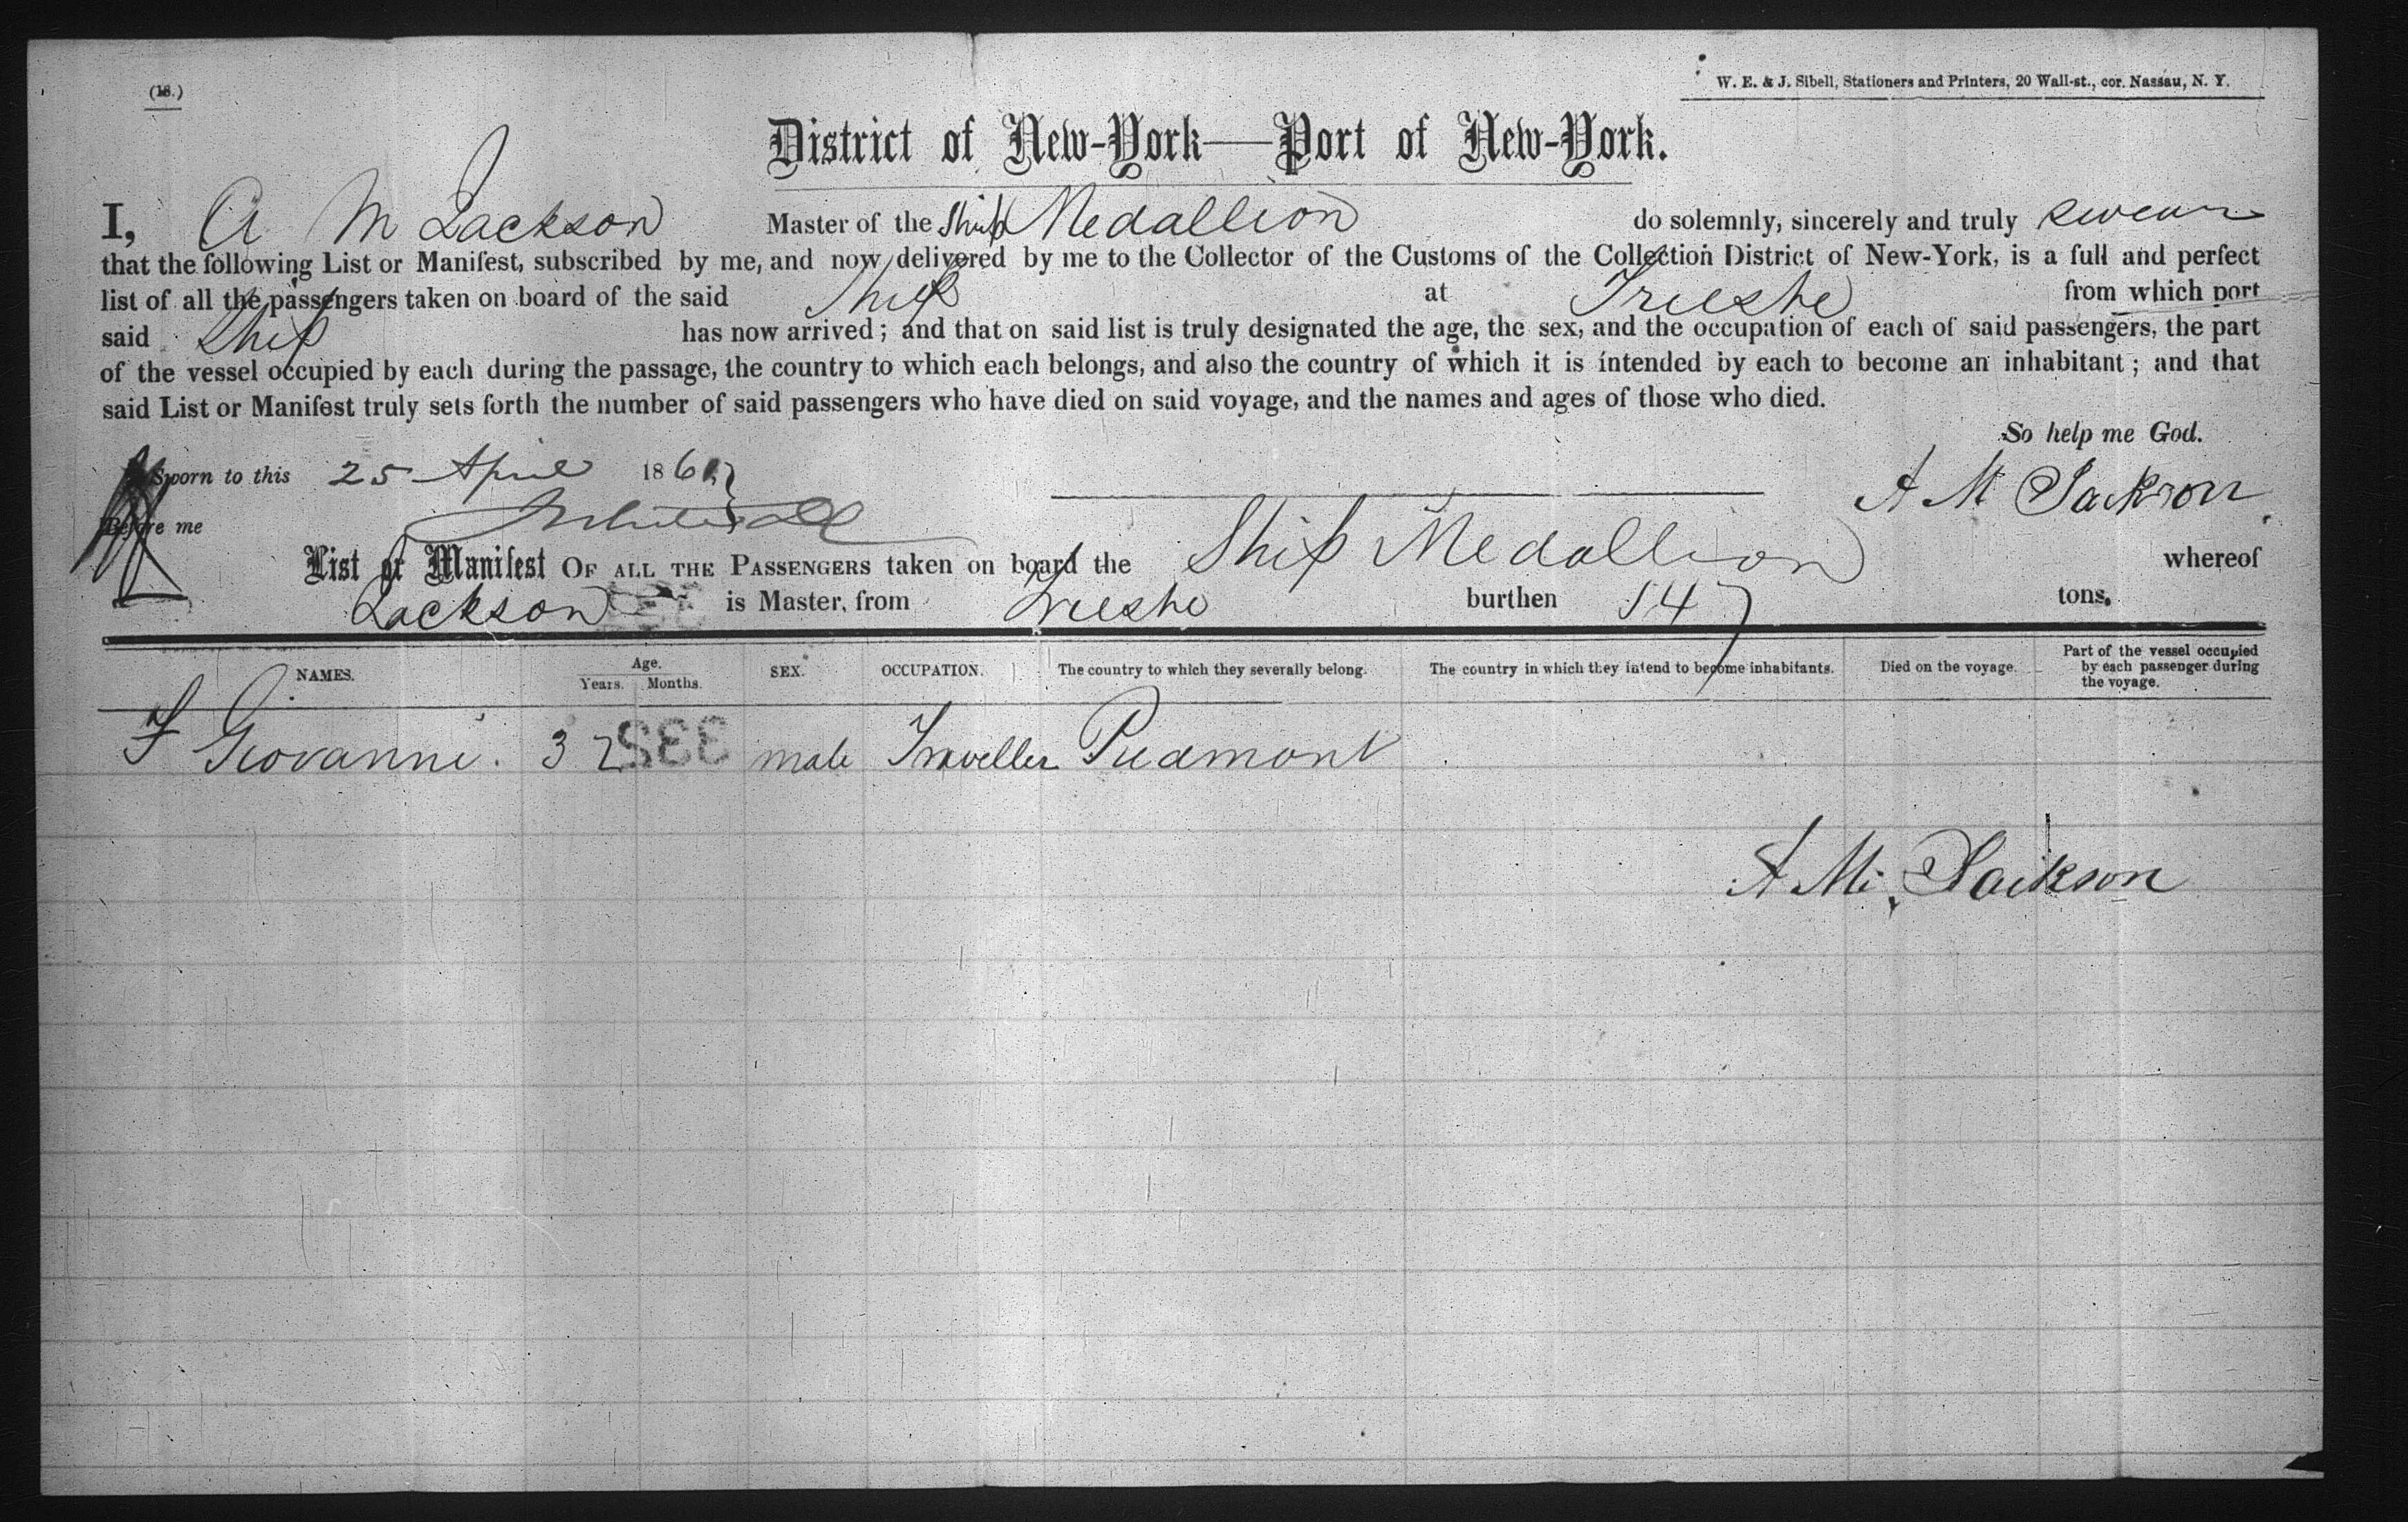 (18.)
W. E. & J. Sibell, Stationers and Printers, 20 Wall-st., cor. Nassau, N. Y.
District of New-York—Port of New-York.
I, A M Jackson Master of the Ship Medallion do solemnly, sincerely and truly swear
that the following List or Manifest, subscribed by me, and now delivered by me to the Collector of the Customs of the Collection District of New-York, is a full and perfect
list of all the passengers taken on board of the said Ship at Trieste from which port
said Ship has now arrived; and that on said list is truly designated the age, the sex, and the occupation of each of said passengers, the part
of the vessel occupied by each during the passage, the country to which each belongs, and also the country of which it is intended by each to become an inhabitant; and that
said List or Manifest truly sets forth the number of said passengers who have died on said voyage, and the names and ages of those who died.
So help me God.
Sworn to this 25 April 186
A M Jackson
Before me
List or Manifest OF ALL THE PASSENGERS taken on board the Ship Medallion whereof
Jackson is Master, from Trieste burthen 547 tons.
NAMES. Age. Years. Months. SEX. OCCUPATION. The country to which they severally belong. The country in which they intend to become inhabitants. Died on the voyage. Part of the vessel occupied by each passenger during the voyage.
F Giovanni. 32 male Traveller Piedmont
A M. Jackson